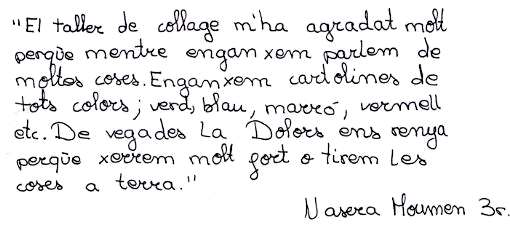 "El taller de collage m'ha agradat molt
perqùe mentre enganxem parlem de
moltes coses. Enganxem cartolines de
tots colors; verd, blau, marró, vermell
etc. De vegades La Dolors ens renya
perqùe xerrem molt fort o tirem les
coses a terra."
Nasera Moumen 3r.